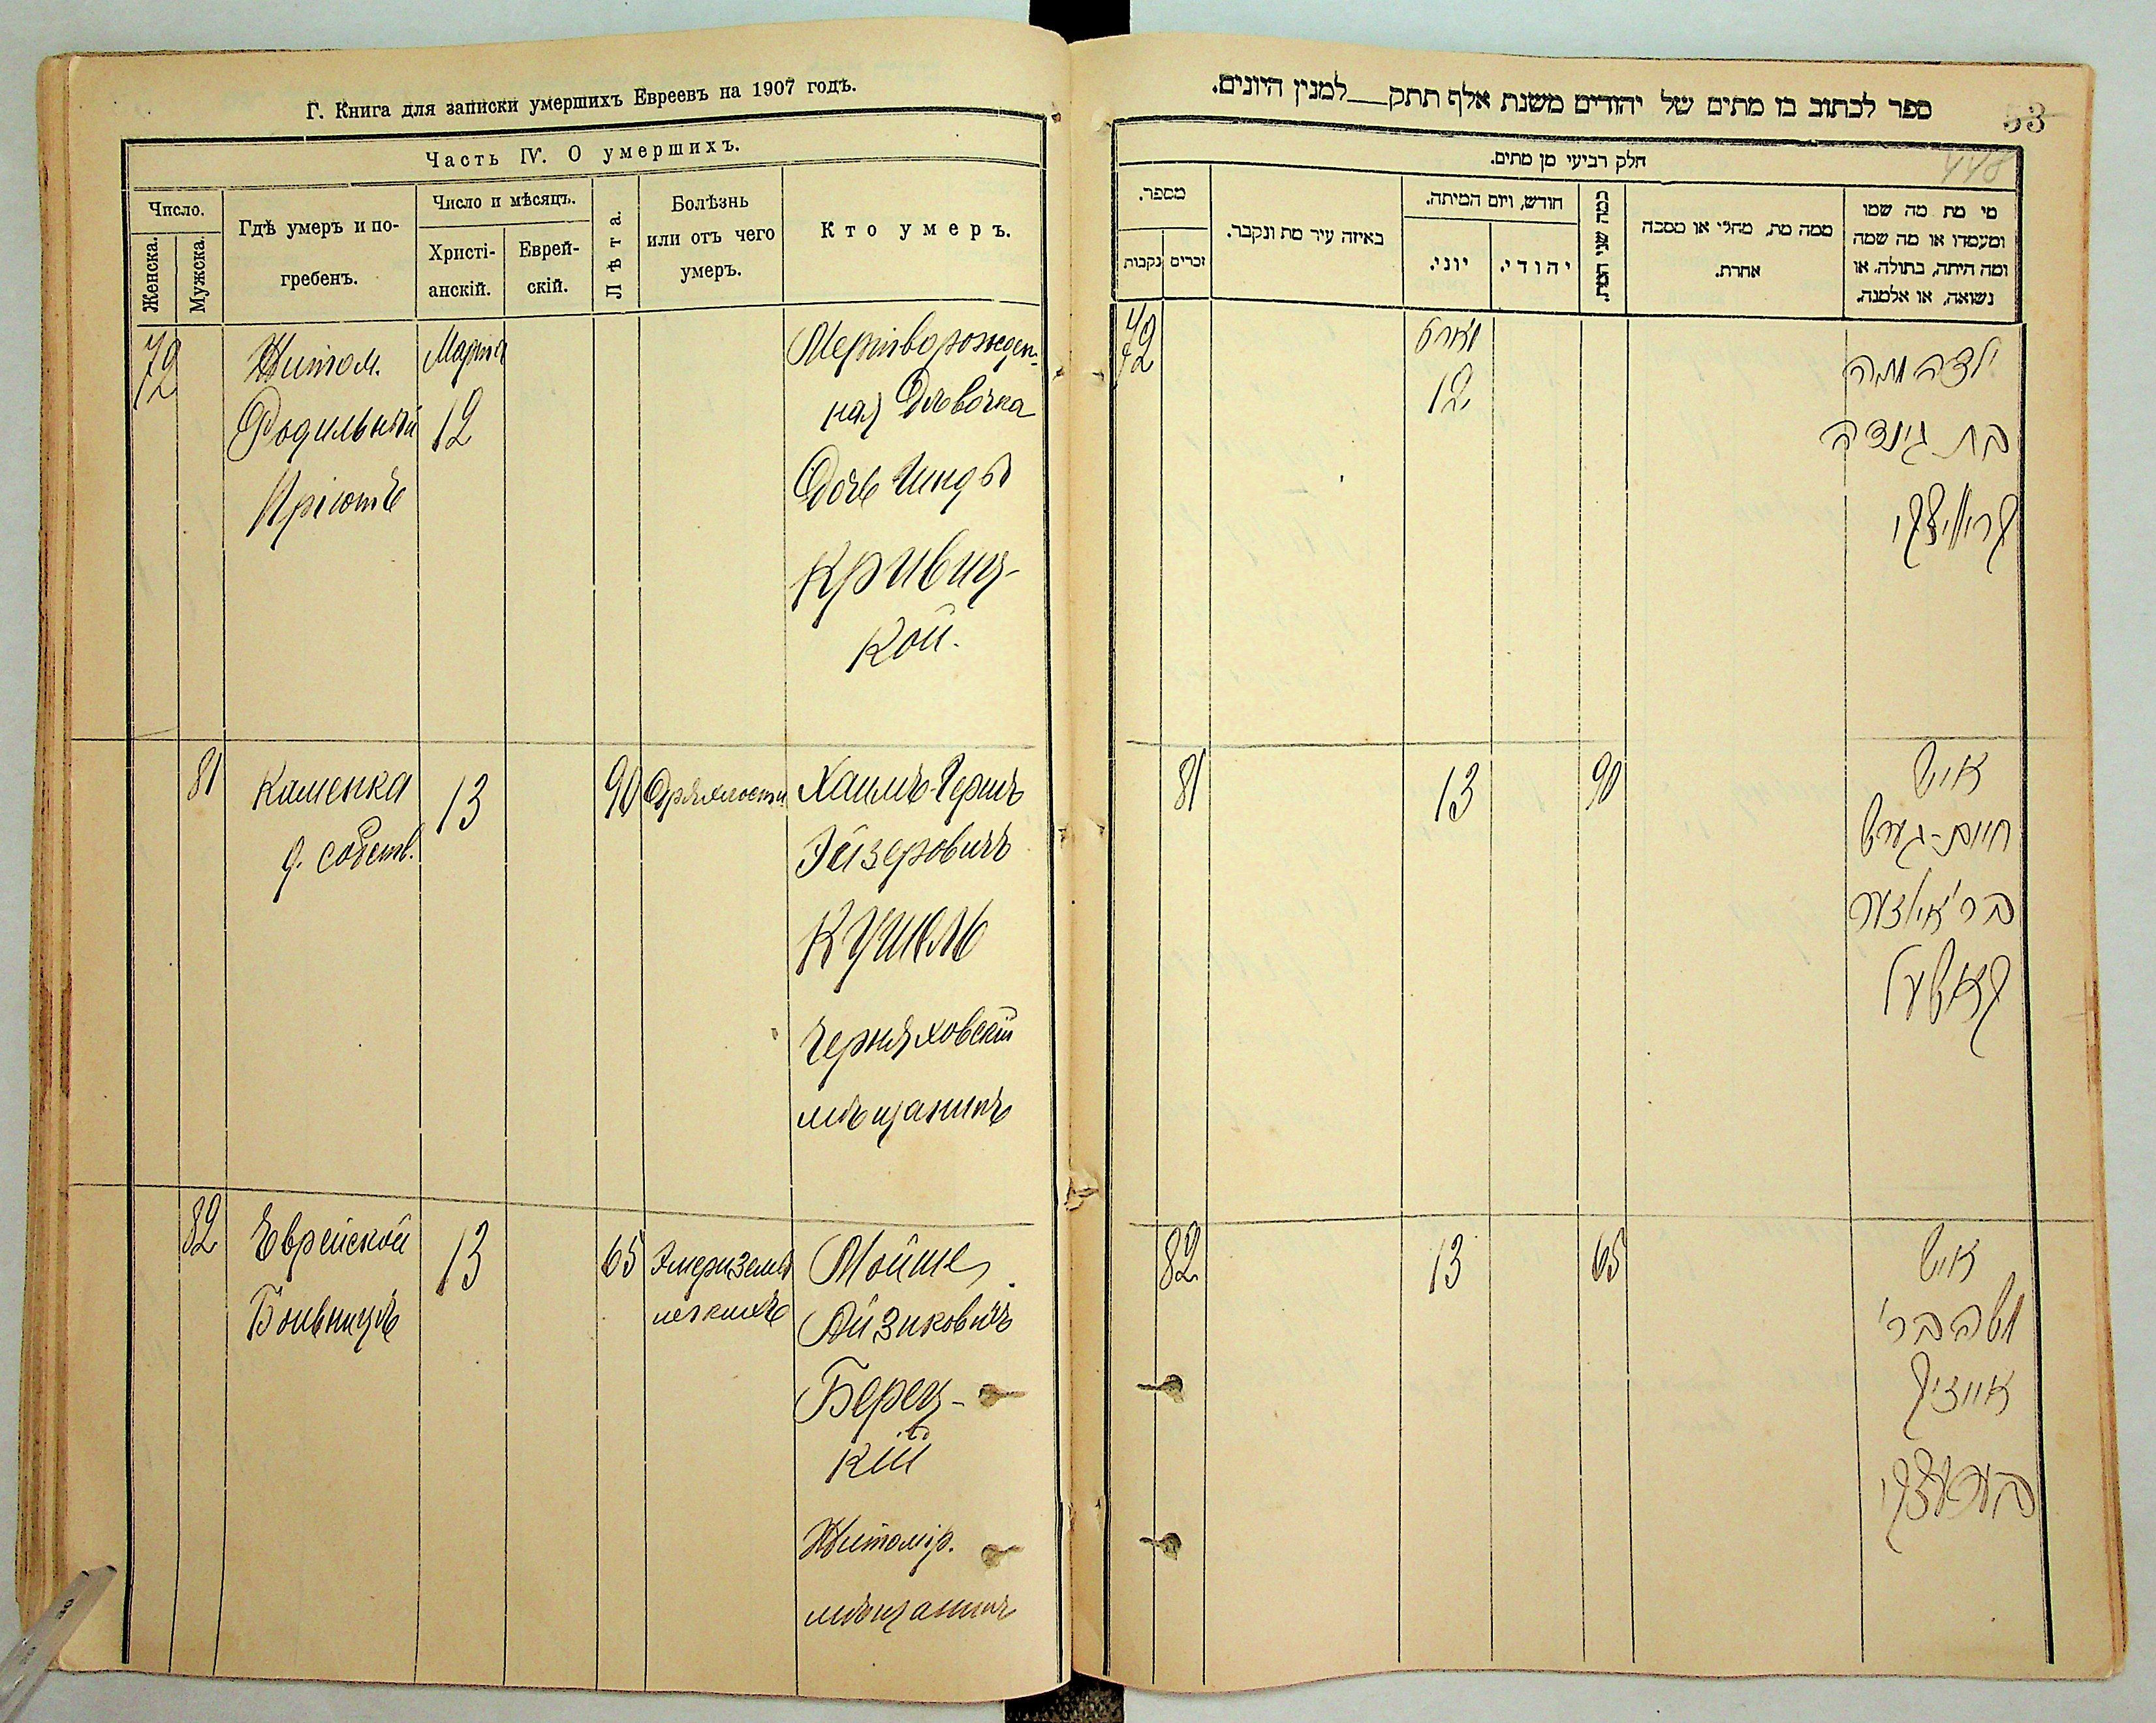 Г. Книга для записки умершихъ Евреевъ на 1907 годъ.
Часть IV. О умершихъ.
Число.
Женска.
Мужска.
Гдѣ умеръ и по-
гребенъ.
Число и мѣсяцъ.
Христі-
анскій.
Еврей-
скій.
Лѣта.
Болѣзнь
или отъ чего
умеръ.
Кто умеръ.
72
Житом.
Родильный
Пріютѣ
Марта
12
Мертворожден-
ная Дѣвочка
Дочь Гинды
Кривиц-
кой.
81
Каменка
д. собств.
13
90
Дряхлости
Хаимъ-Гершъ
Эйзеровичъ
Кушель
Черняховскій
мѣщанинъ
82
Еврейской
Больницѣ
13
65
легкихъ
Мойше
Айзиковичъ
Берец-
кій
Житомір.
мѣщанинъ
ספר לכתוב בו מתים של יהודים משנת אלף תתק למנין היונים.
53
448
חלק רביעי מן מתים.
מספר.
נקבות
זכרים
באיזה עיר מת ונקבר.
חודש, ויום המיתה.
יוני.
יהודי.
כמה שני המת.
ממה מת, מחלי או מסבה
אחרת.
מי מת מה שמו
ומעמדו או מה שמה
ומה היתה, בתולה, או
נשואה, או אלמנה.
72
מארט
12
ילדה מתה
בת גינדה
קריוויצקי
81
13
90
איש
חיים-גערש
בר' אייזער
קאשעל
82
13
65
איש
משה בר'
אייזיק
בערעצקי